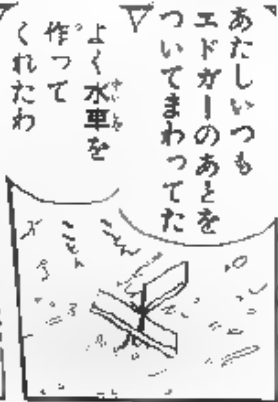 あたしいつも
エドガーのあとを
ついてまわってた
よく水車を
作って
くれたわ
ことん
ことん